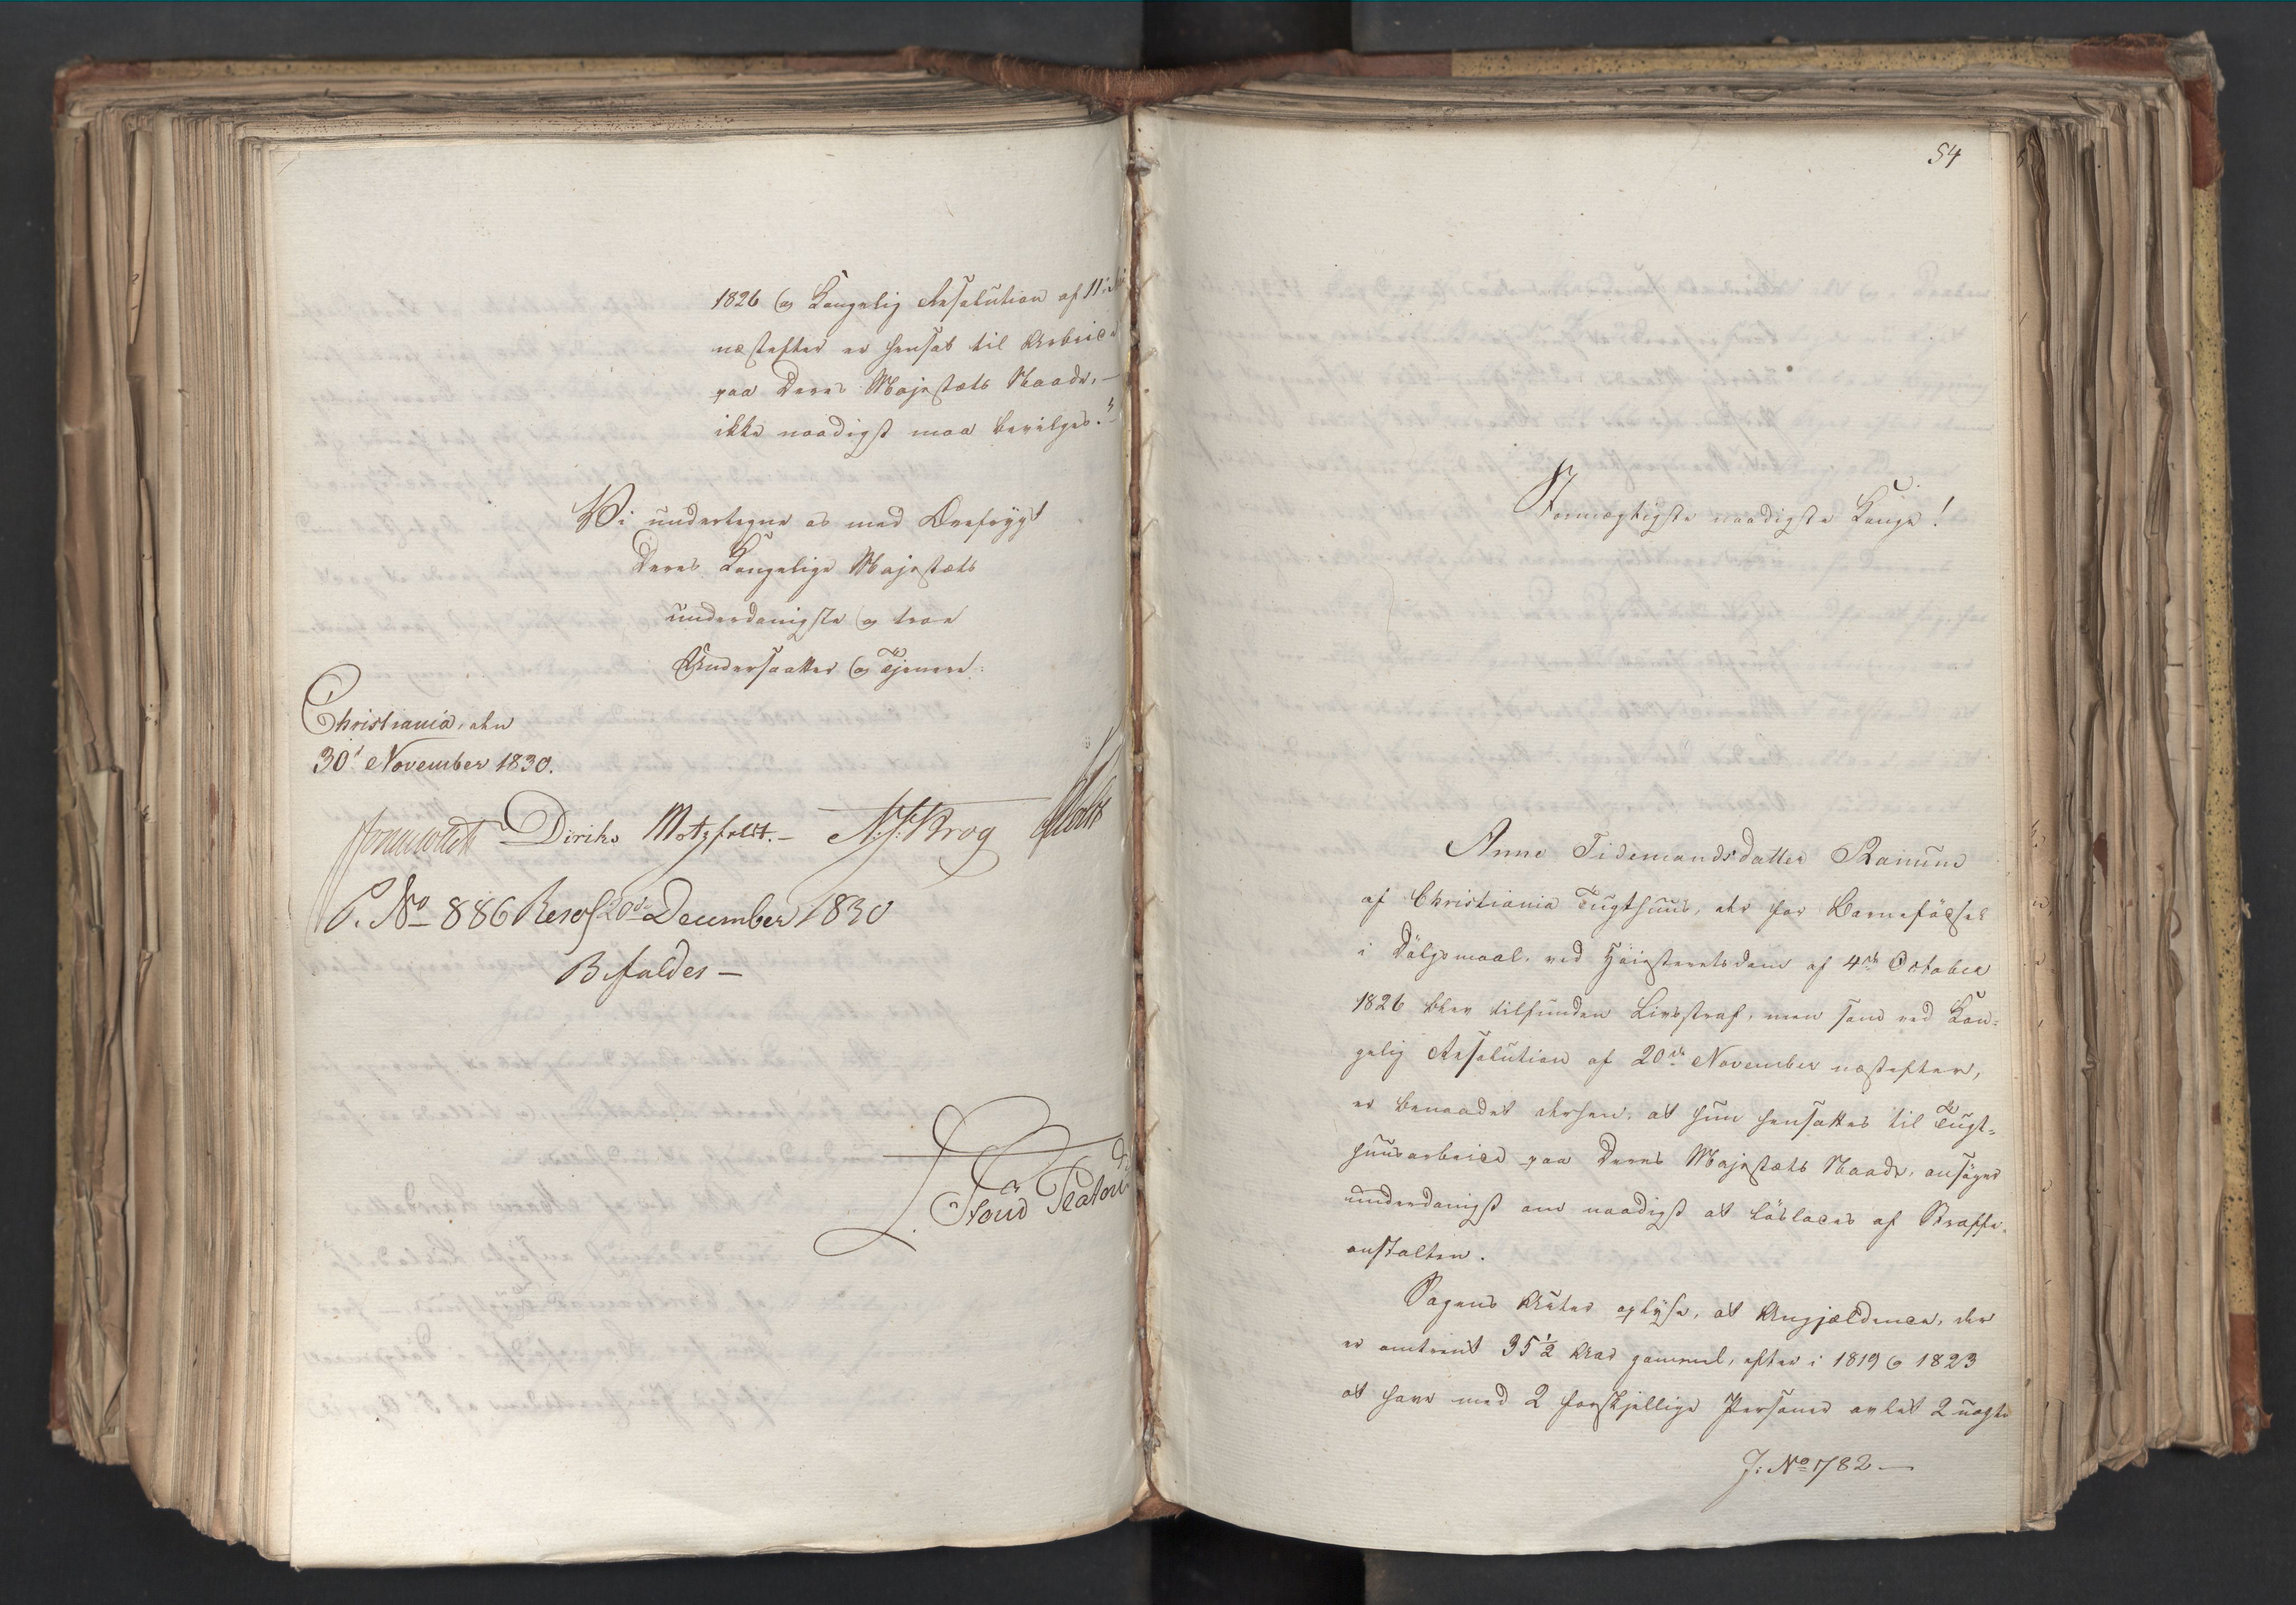 1826 og Kongelig Resolution af 11te
næstefter er hensat til Arbeide
paa Deres Majestæts Naade, —
ikke naadigst maa bevilges." —
Vi undertegne os med Ærefrygt
Deres Kongelige Majestæts
underdanigste og troe
Undersaatter og Tjenere:
Christiania, den
30' November 1830.
Diriks Motzfeldt. — Krog Holst
P. No 886 Resol 20de December 1830
Bifaldes —
54
Stormægtigste naadigste Konge!
Anne Tidemandsdatter Ranum
af Christiania Tugthuus, der for Barnefødsel
i Dølgsmaal, ved Høiesteretsdom af 4de October
1826 blev tilfunden Livsstraf, men som ved Kon=
gelig Resolution af 20de November næstefter,
er benaadet derhen, at hun hensattes til Tugt=
huusarbeide paa Deres Majestæts Naade, ansøger
underdanigst om naadigst at løslades af Straffe=
anstalten.
Sagens Akter oplyse, at Angjældende, der
er omtrent 35½ Aar gammel, efter i 1819 og 1823
at have med 2 forskjellige Personer avlet 2 uægte
J: No 1782 —